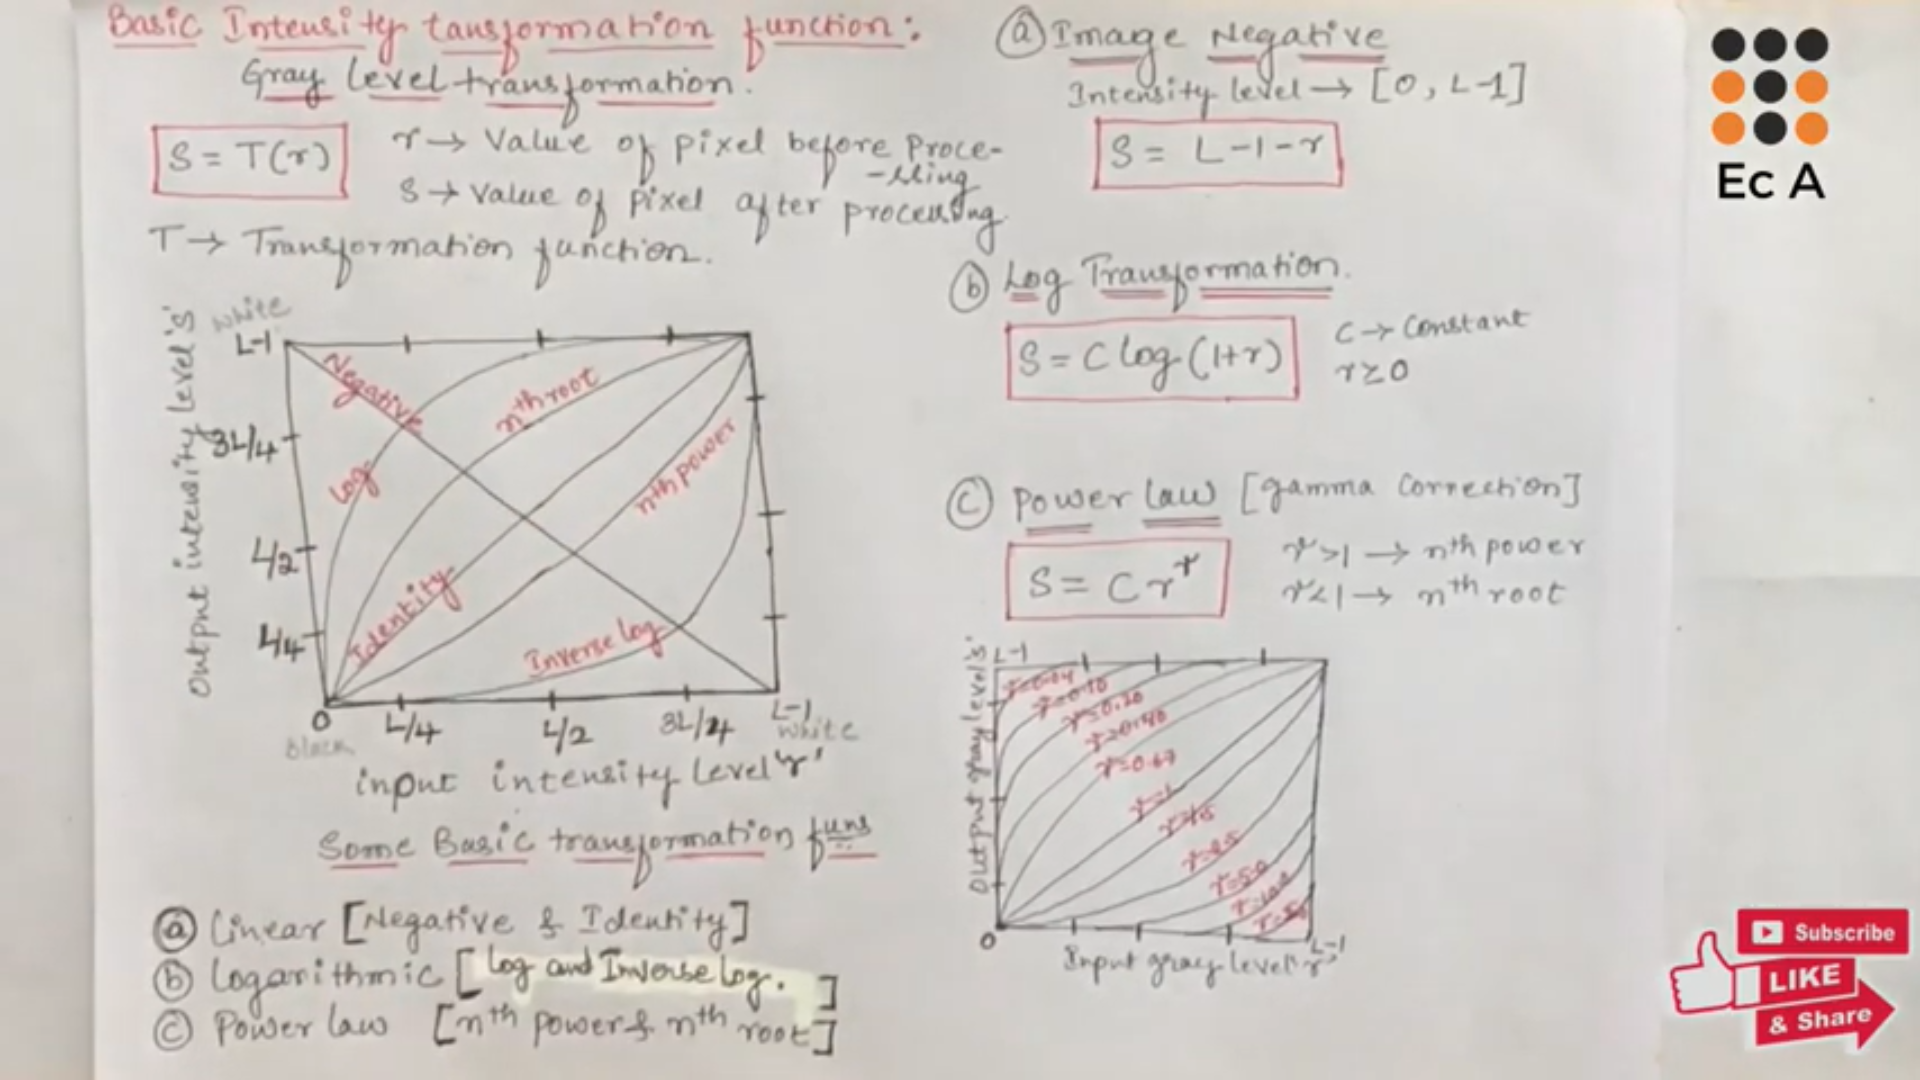 Basic Intensity tansformation function:
Gray level transformation.
S = T(r)
r → Value of pixel before Proce-
-ssing
S → Value of pixel after processing.
T → Transformation function.
White
L-1
3L/4
L/2
L/4
0
L/4
L/2
3L/4
L-1
black
white
Output intensity level 's'
Negative
nth root
Log
nth power
Identity
Inverse log
input intensity level 'r'
Some Basic transformation funs
(a) Linear [Negative & Identity]
(b) Logarithmic [Log and Inverse Log.]
(c) Power law [nth power & nth root]
(a) Image Negative
Intensity level → [0, L-1]
S = L-1-r
(b) Log Transformation.
S = C log (1+r)
C → Constant
r ≥ 0
(c) Power law [gamma Correction]
S = C r^γ
γ>1 → nth power
γ<1 → nth root
L-1
Output gray level 's'
γ=0.04
γ=0.10
γ=0.20
γ=0.40
γ=0.67
γ=1
γ=2.5
γ=5.0
0
L-1
Input gray level 'r'
Ec A
Subscribe
LIKE
& Share